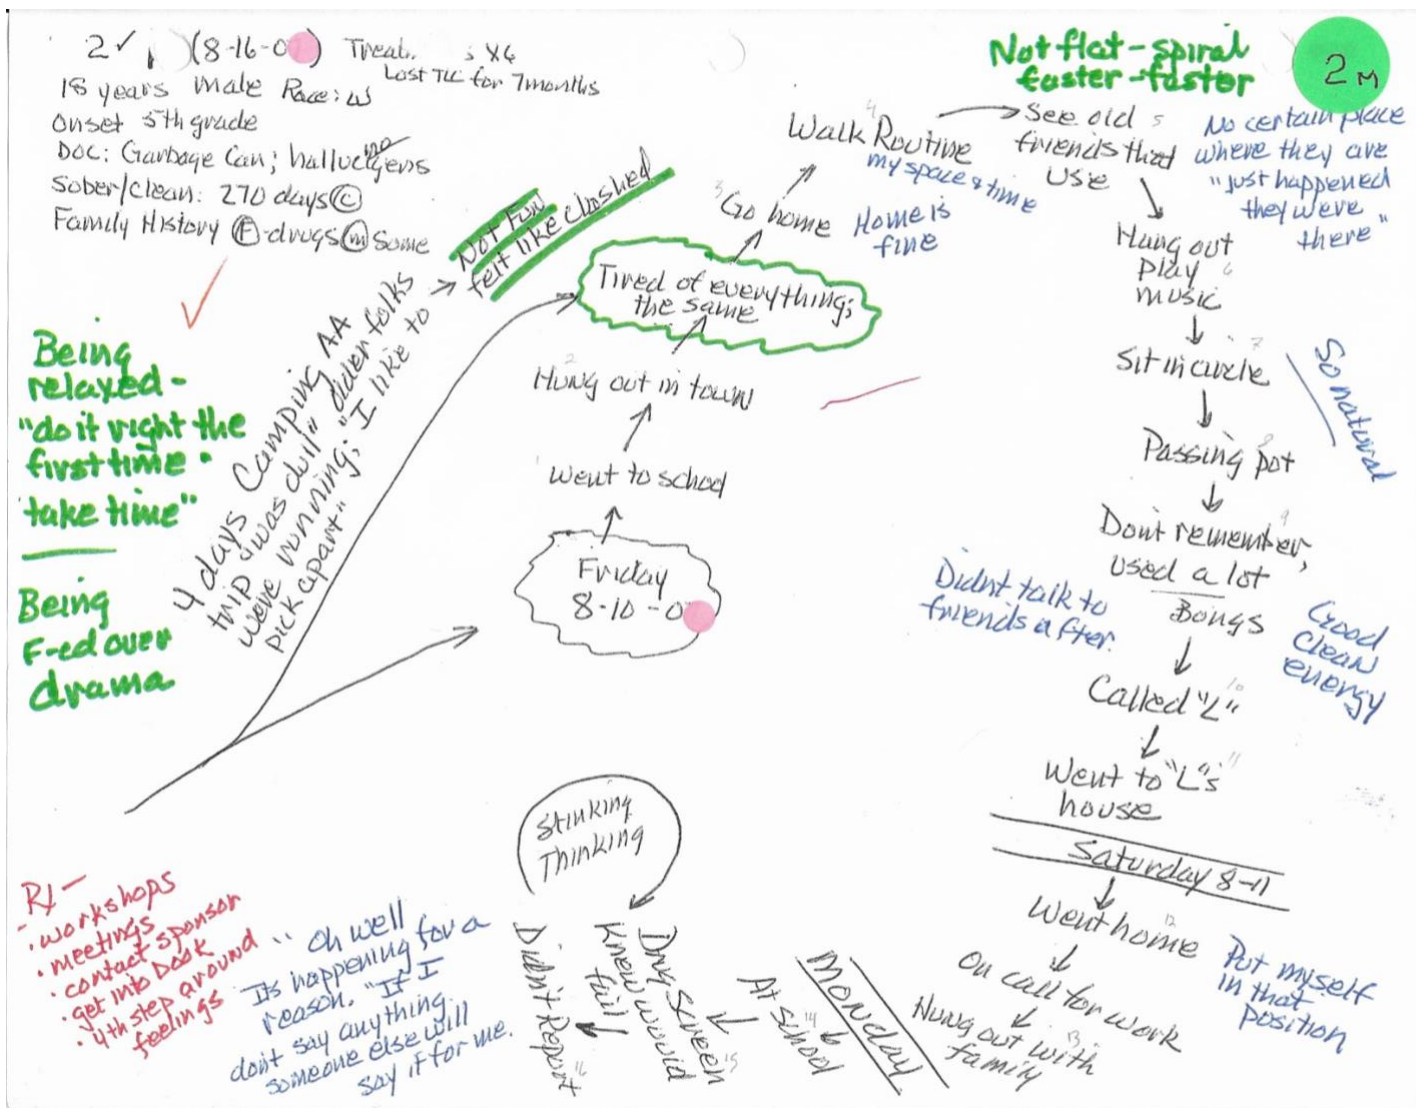 2 ✓ (8-16-0 ) Treat. s x6
Lost TLC for 7 months
18 years male Race: W
Onset 5th grade
DOC: Garbage Can; hallucinogens
Sober/clean: 270 days Ⓒ
Family History Ⓕ-drugs Ⓜ some
Being
relaxed -
"do it right the
first time .
take time"
Being
F-ed over
drama
4 days Camping AA
trip "was dull" older folks
were running; "I like to →
pick apart"
Not Fun
felt like clashed
Friday
8-10-0
1 Went to school
2 Hung out in town
Tired of everything;
the same
3 Go home
Home is
fine
4 Walk Routine
my space & time
Not flat - spiral
faster - faster
2M
See old 5
friends that
use
No certain place
where they are
"just happened
they were
there"
Hang out
play 6
music
Sit in circle 7
So natural
Passing pot 8
Don't remember, 9
used a lot
Bongs
Didnt talk to
friends after.
Good
Clean
energy
Called "L" 10
Went to "L"s 11
house
Saturday 8-11
Went home 12
Put myself
in that
position
On call for work
Hung out with 13
family
Monday
At school 14
Drug screen 15
Knew would
fail
Didn't Report 16
Stinking
Thinking
"Oh well
Its happening for a
reason." "If I
dont say anything
someone else will
say it for me.
Rx -
• workshops
• meetings
• contact sponsor
• get into book
• 4th step around
feelings